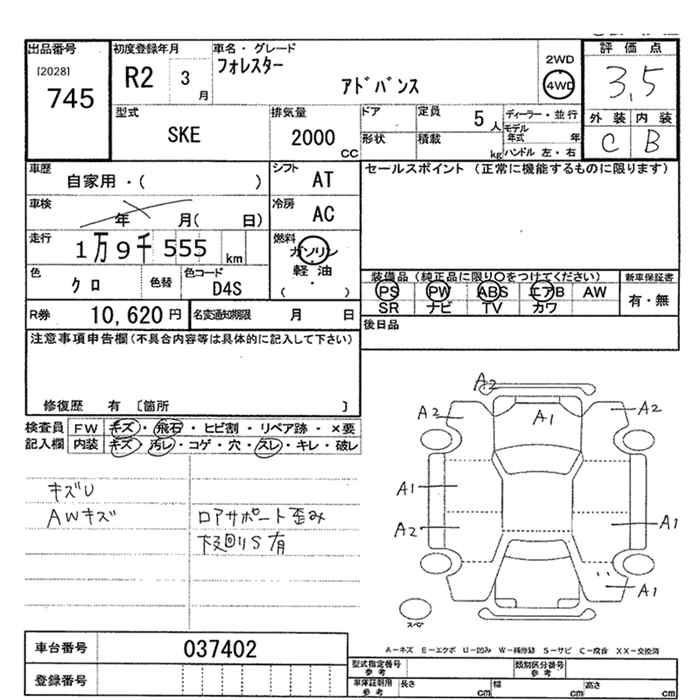 出品番号
[2028]
745
初度登録年月
R2 3 月
車名・グレード
フォレスター
アドバンス
2WD
4WD
評価点
3.5
外装 内装
C B
型式
SKE
排気量
2000 CC
ドア
形状
定員 5 人
積載 kg
ディーラー・並行
モデル年式 年
ハンドル 左・右
車歴
自家用・( )
シフト AT
車検
年 月( 日)
冷房 AC
走行
1万9千555 km
燃料
ガソリン
軽油
( ・ )
色
クロ
色替
色コード
D4S
R券 10,620 円
名変通知期限 月 日
セールスポイント (正常に機能するものに限ります)
装備品 (純正品に限り○をつけてください)
PS PW ABS エアB AW
SR ナビ TV カワ
新車保証書
有・無
後日品
注意事項申告欄(不具合内容等は具体的に記入して下さい)
修復歴 有 〔箇所 〕
検査員記入欄
FW キズ・飛石・ヒビ割・リペア跡・×要
内装 キズ・汚レ・コゲ・穴・スレ・キレ・破レ
キズU
AWキズ
ロアサポート歪み
下回りS有
A2
A2 A1 A2
A1
A2 A1
A1
スペア
A−キズ E−エクボ U−凹み W−補修跡 S−サビ C−腐食 XX−交換済
車台番号 037402
登録番号
型式指定番号 参考
類別区分番号 参考
車庫証明用 参考 長さ cm 幅 cm 高さ cm